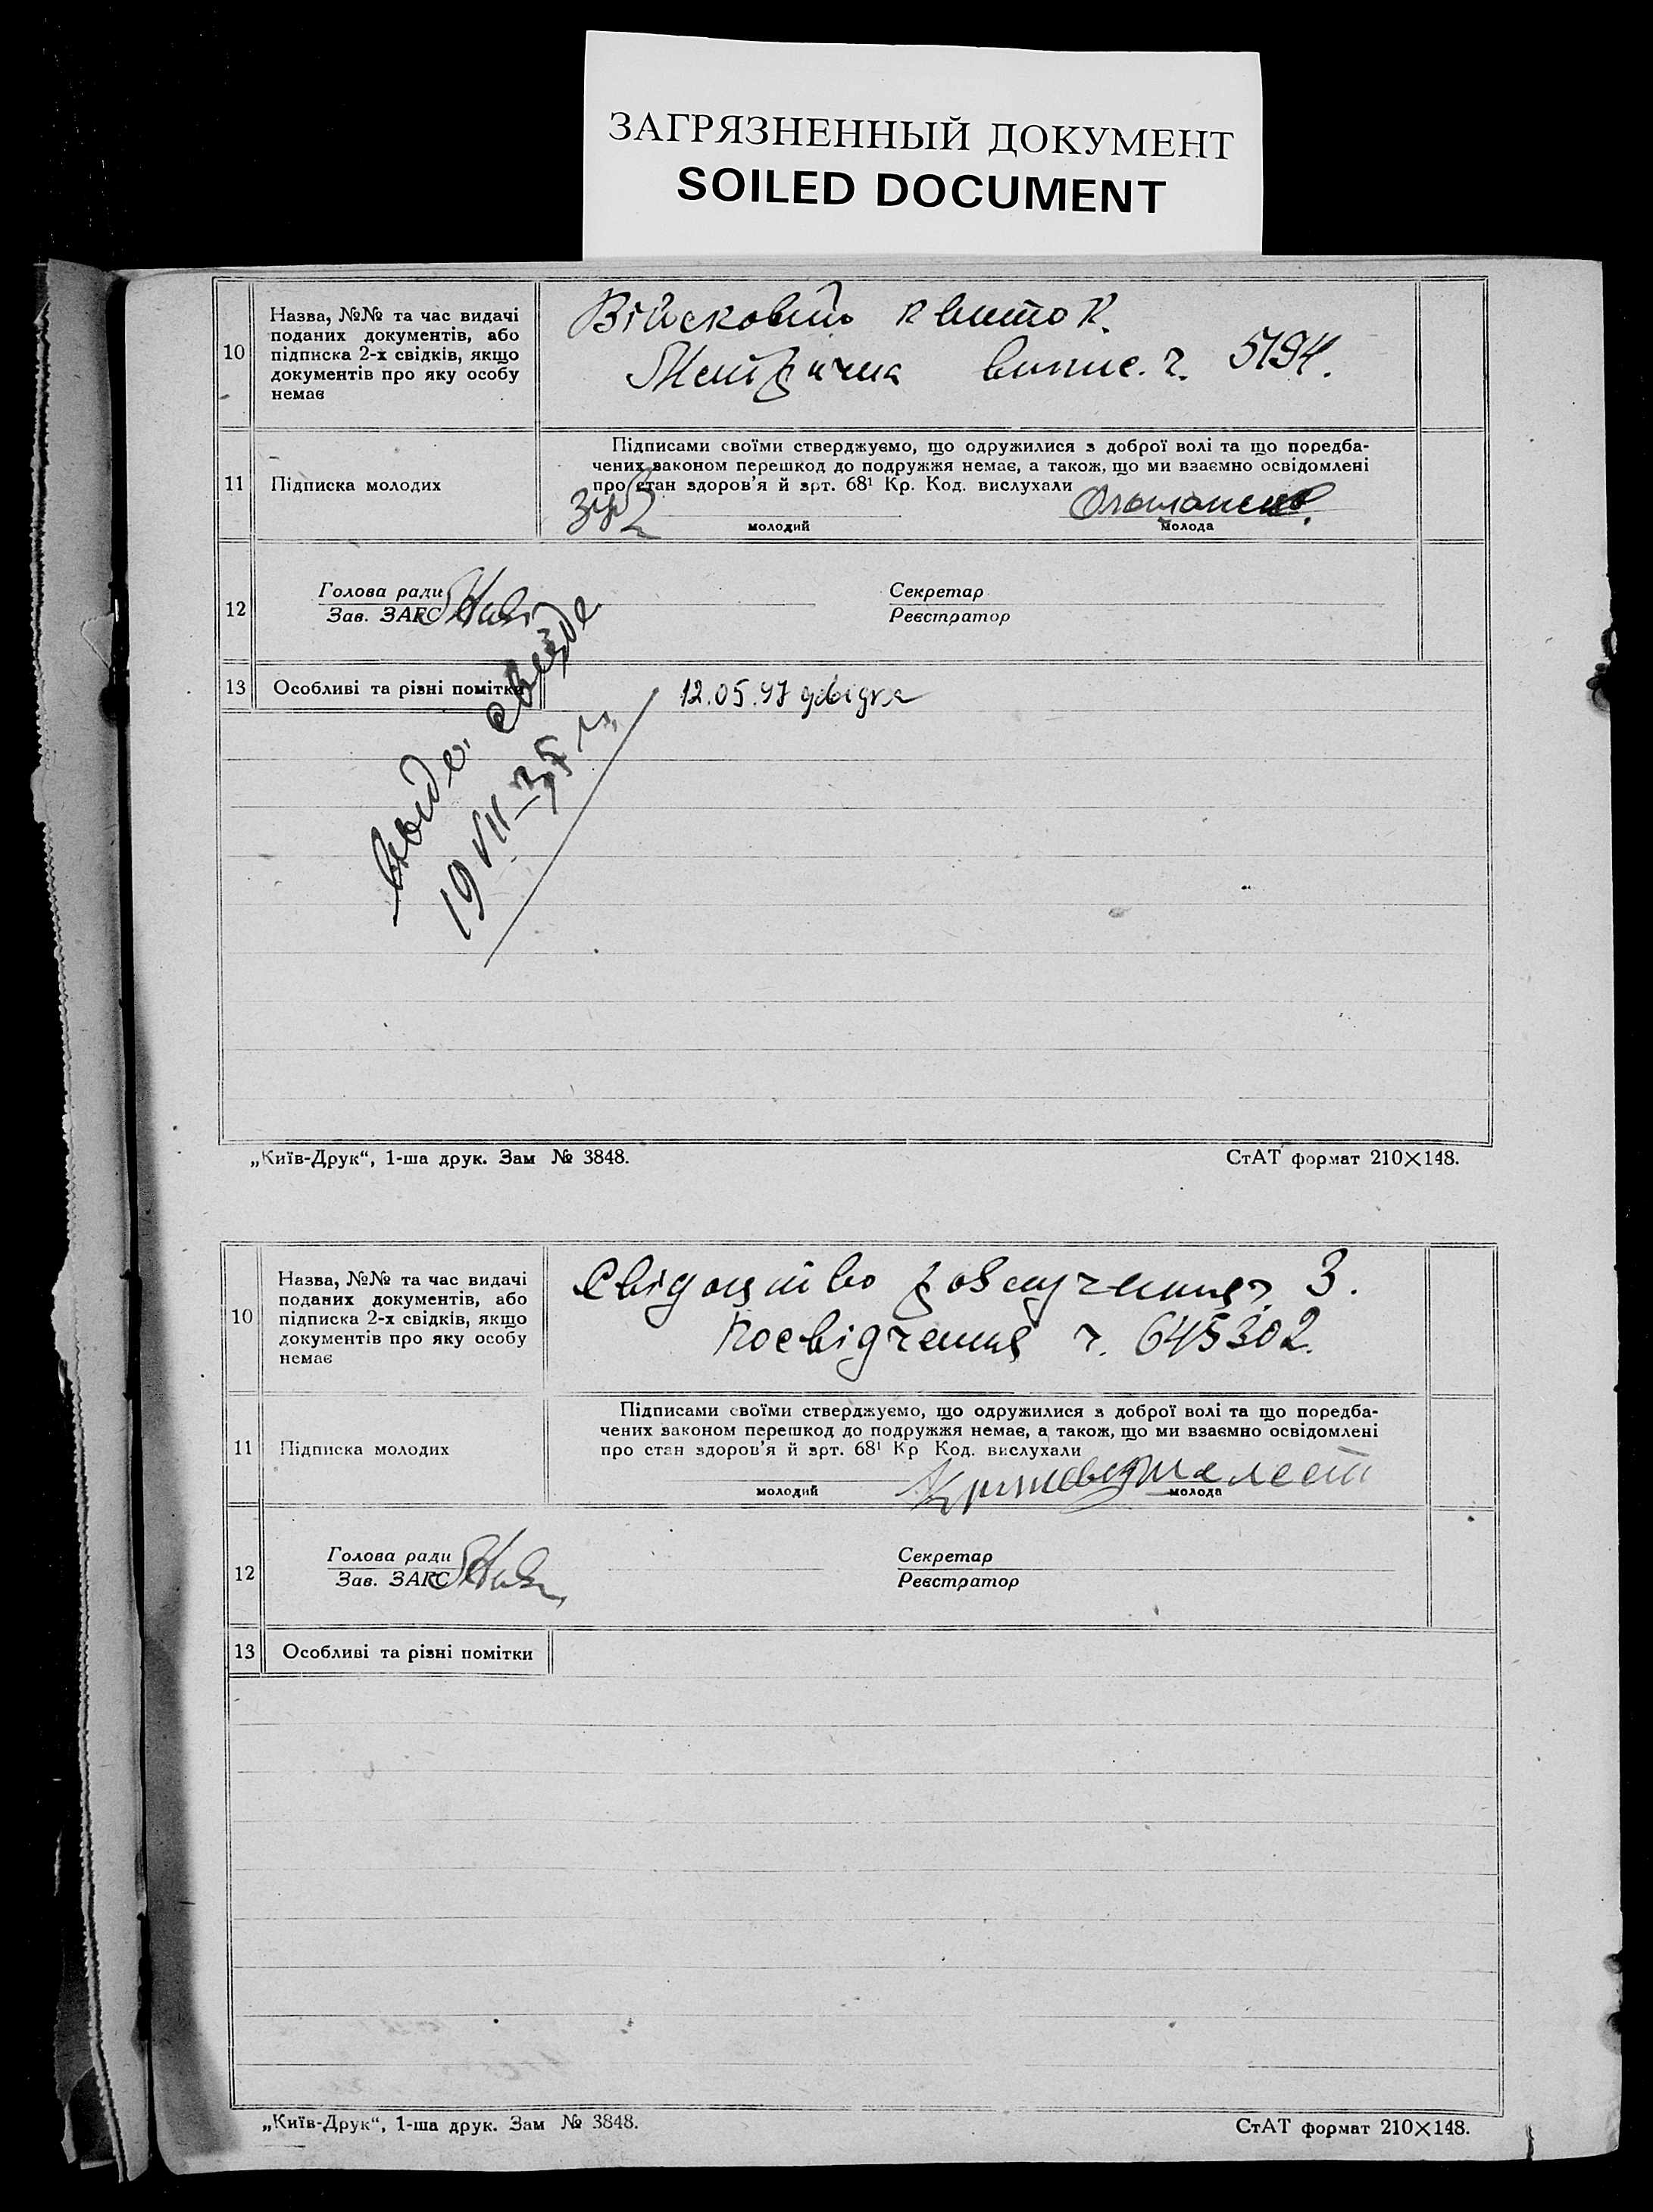 ЗАГРЯЗНЕННЫЙ ДОКУМЕНТ
SOILED DOCUMENT
10
Назва, №№ та час видачі
поданих документів, або
підписка 2-х свідків, якщо
документів про яку особу
немає
Військовий квиток.
Метрична випис. ч. 5194.
11
Підписка молодих
Підписами своїми стверджуємо, що одружилися з доброї волі та що поредба-
чених законом перешкод до подружжя немає, а також, що ми взаємно освідомлені
про стан здоров'я й арт. 68¹ Кр. Код. вислухали
молодий
молода
12
Голова ради
Зав. ЗАГС
Секретар
Реєстратор
13
Особливі та різні помітки
12.05.97
19 VII 35 г.
„Київ-Друк“, 1-ша друк. Зам № 3848.
СтАТ формат 210×148.
10
Назва, №№ та час видачі
поданих документів, або
підписка 2-х свідків, якщо
документів про яку особу
немає
Свідоцтво розлучення ч. 3.
Посвідчення ч. 645302.
11
Підписка молодих
Підписами своїми стверджуємо, що одружилися з доброї волі та що поредба-
чених законом перешкод до подружжя немає, а також, що ми взаємно освідомлені
про стан здоров'я й арт. 68¹ Кр Код. вислухали
молодий
молода
12
Голова ради
Зав. ЗАГС
Секретар
Реєстратор
13
Особливі та різні помітки
„Київ-Друк“, 1-ша друк. Зам № 3848.
СтАТ формат 210×148.